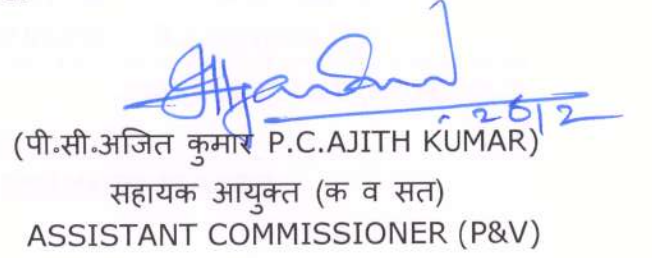 26/2
(पी॰सी॰अजित कुमार P.C.AJITH KUMAR)
सहायक आयुक्त (क व सत)
ASSISTANT COMMISSIONER (P&V)